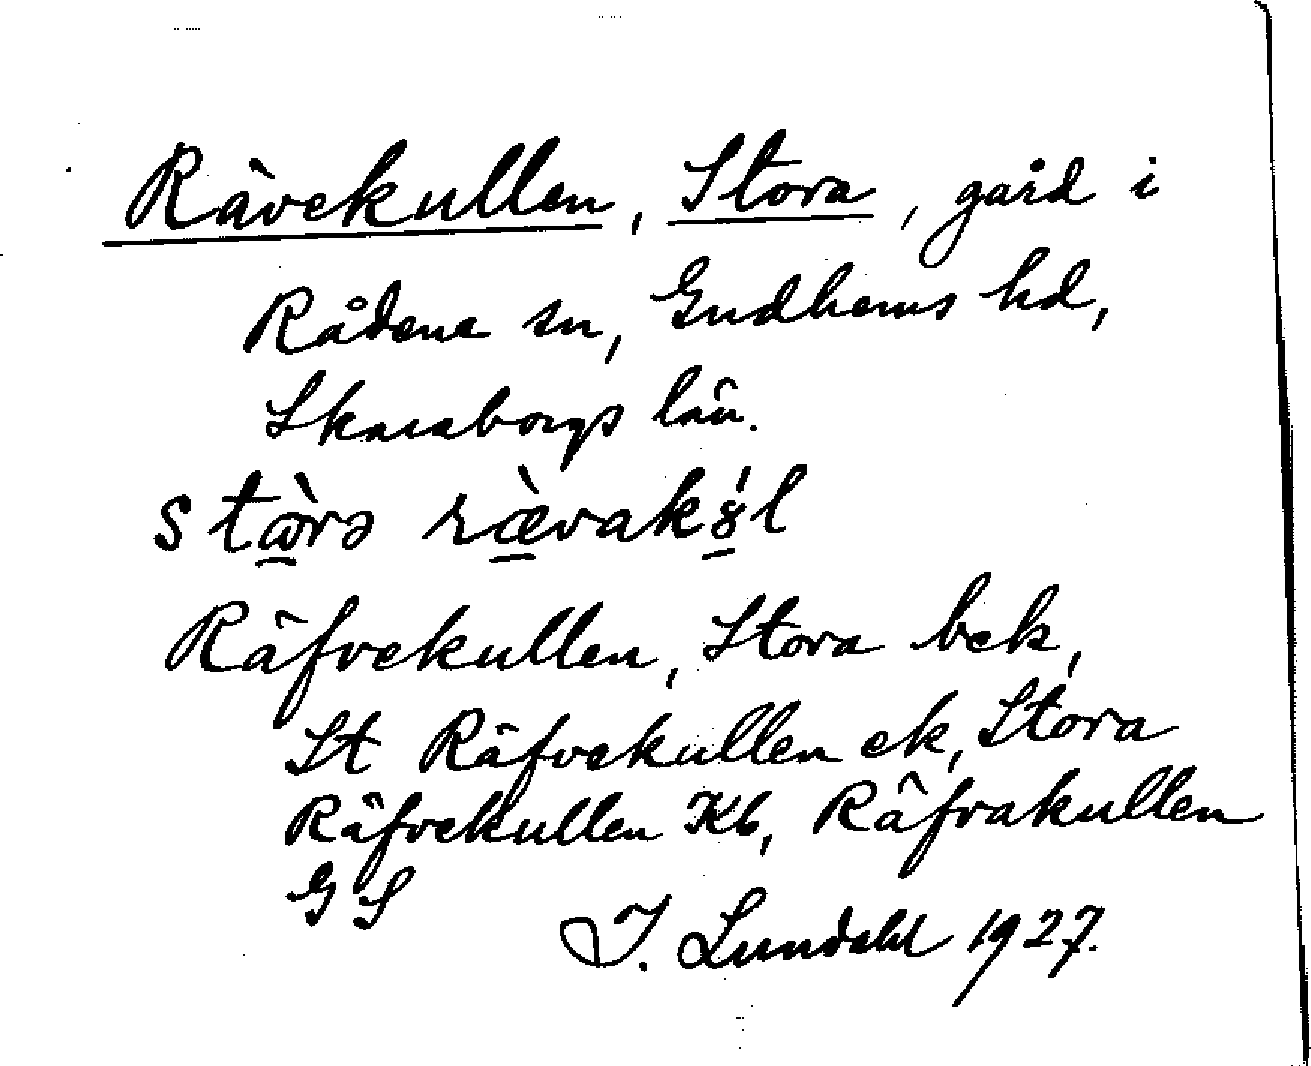 Rävekullen, Stora, gård i
Rådene sn, Gudhems hd,
Skaraborgs län.
stὼrə ræ̀vakɞ́l
Räfvekullen, Stora bek,
St Räfvekullen ek, Stora
Räfvekullen Kb, Räfvakullen
GS
I. Lundahl 1927.